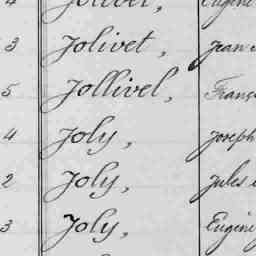 4 Jolivet, Eugène
3 Jolivet, Jean
5 Jollivel, Franç
4 Joly, Joseph
2 Joly, Jules
3 Joly, Eugène